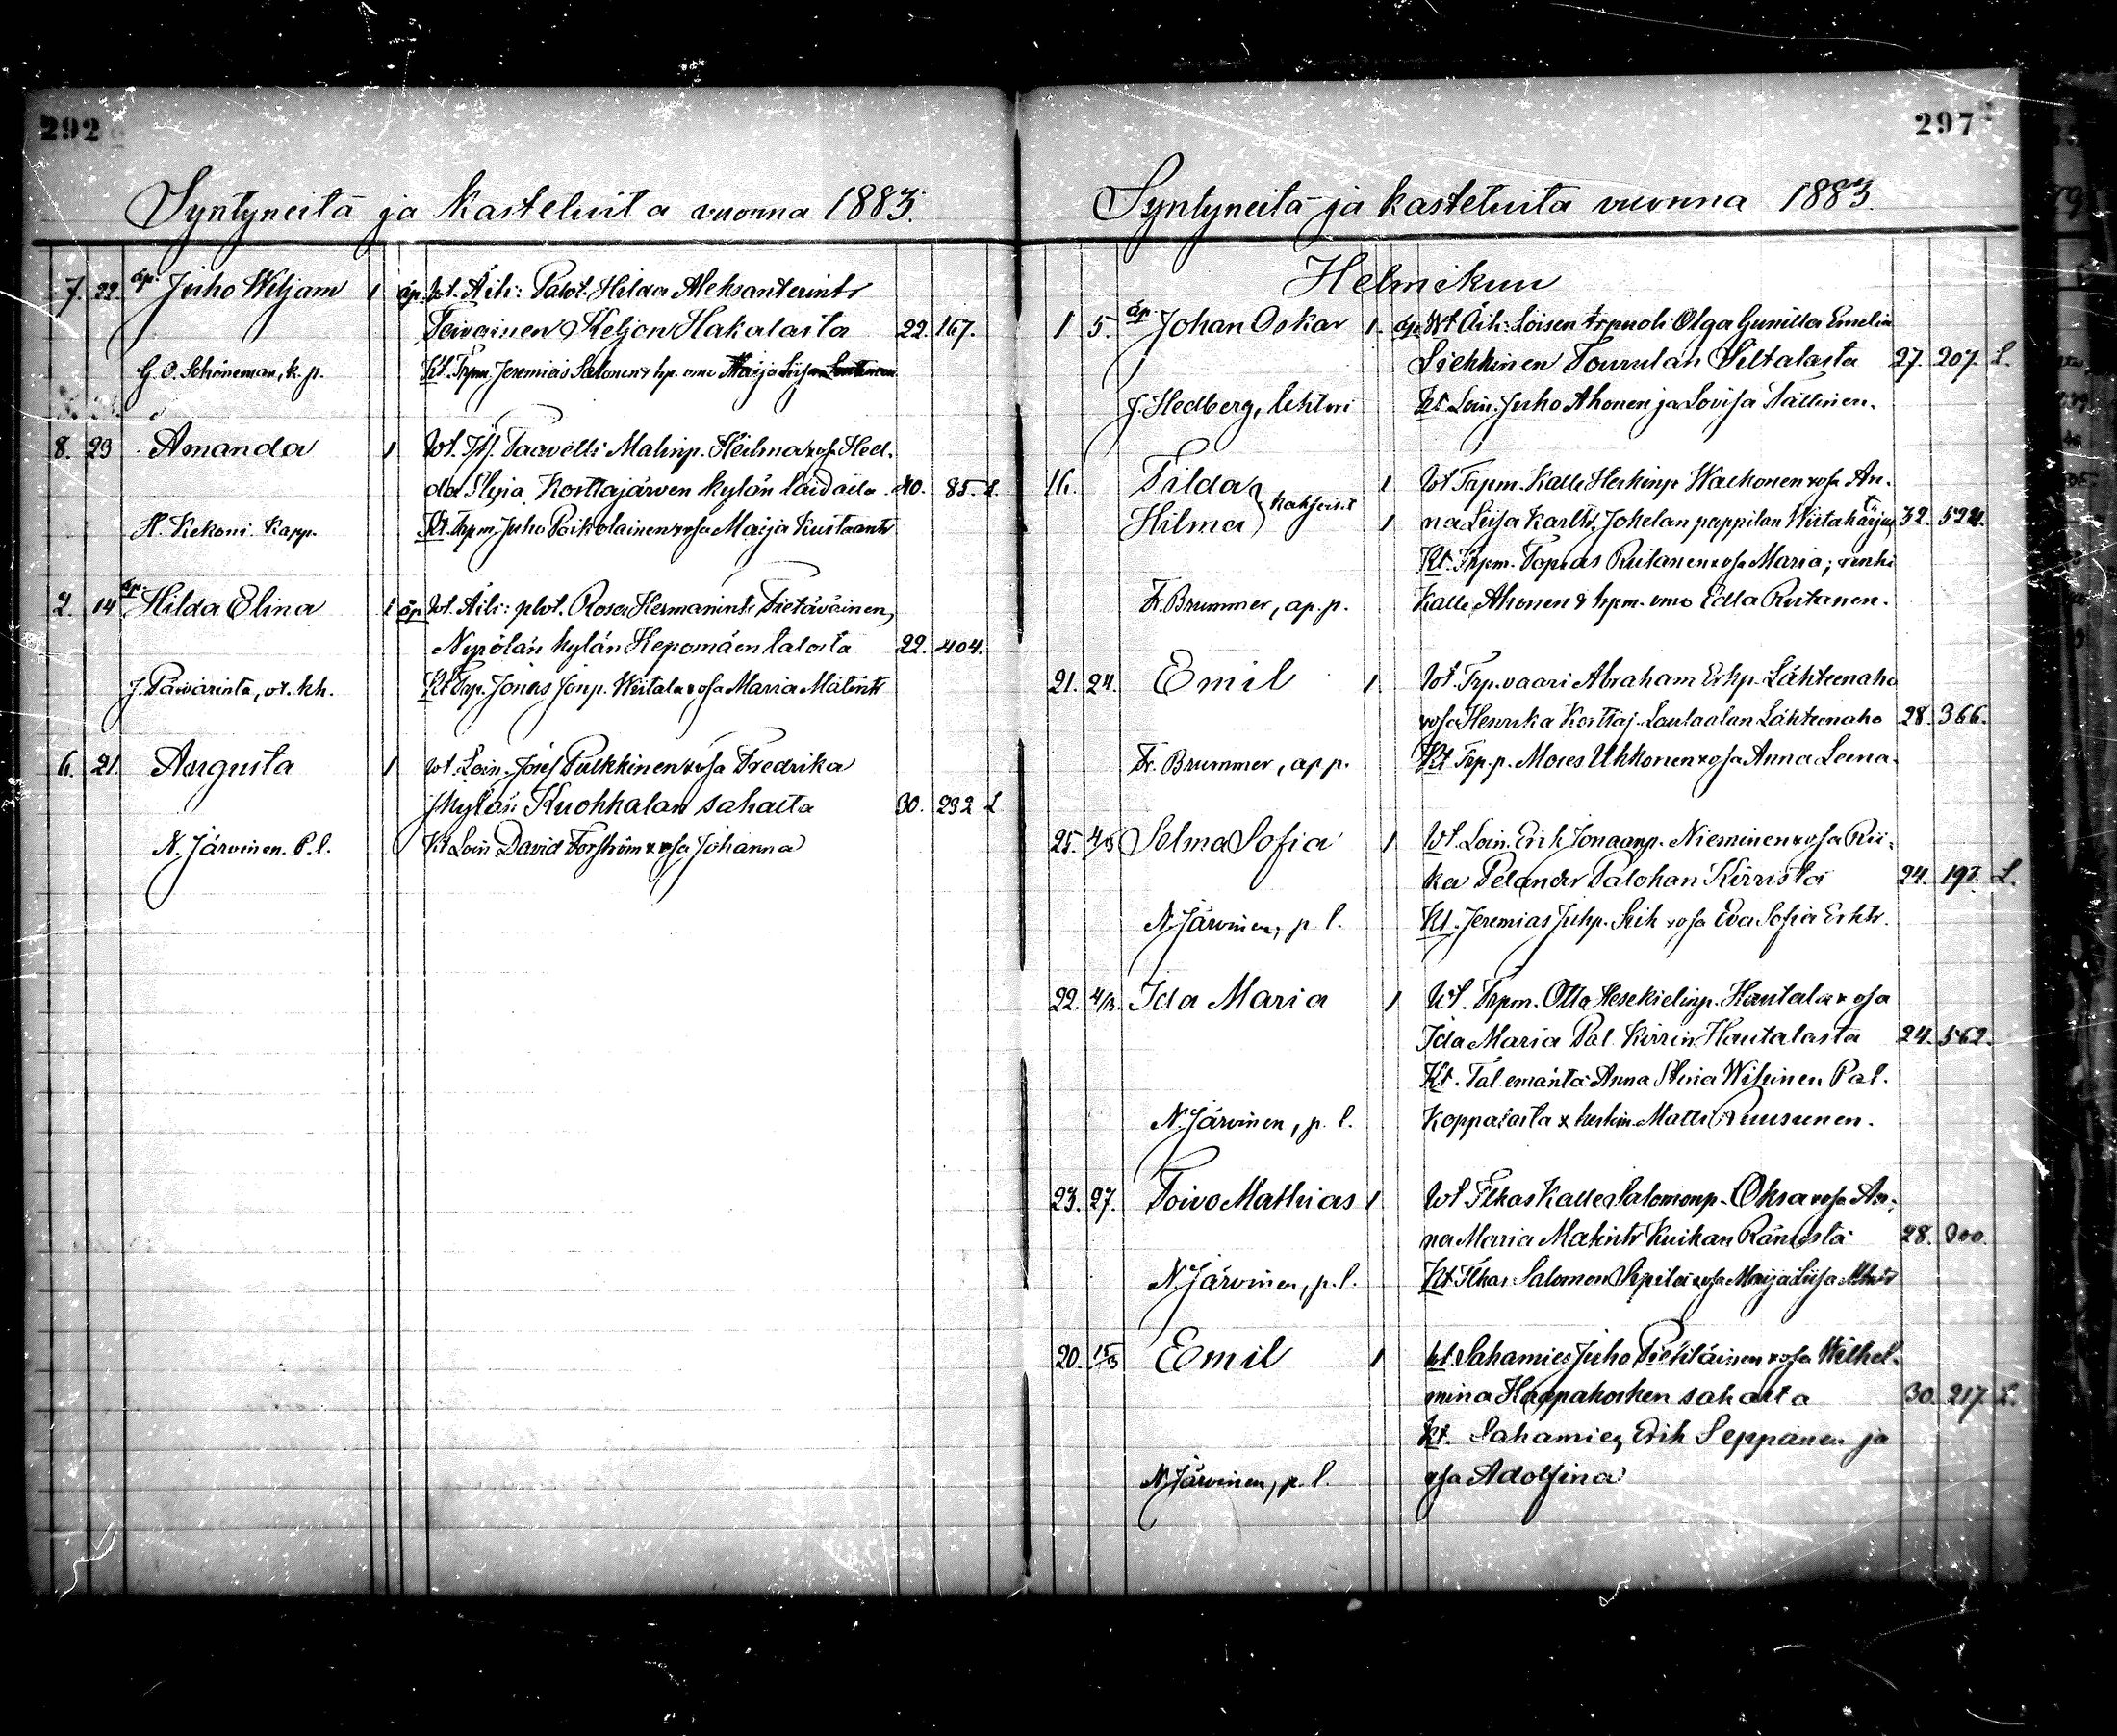 292
Syntyneitä ja kasteluita vuonna 1883.
7. 22. äp. Juho Wiljam 1 äp. Wt. Äiti: Palvt. Hilda Aleksanterintr
Toivainen Keljon Hakalasta 22. 167.
G. O. Schöneman, k. p. Kt. Trpm. Jeremias Salonen & trp. emo Maija Liisa
8. 23 Amanda 1 Wt. Itsl. Taavetti Matinp. Heilma x vsa Hed-
da Stina Korttajärven kylän Laidalla 40. 85. L.
H. Kekoni. Kapp. Kt. Trpm. Juho Paikolainen x vsa Maija Kustaantr
2. 14 äp. Hilda Elina 1 äp Wt. Äiti: plvt. Rosa Hermanintr Tietäväinen,
Nyrölän kylän Hepomäen talosta 22. 404.
J. Päivärinta, vt. kh. Kt Trp. Jonas Jonp. Wiitala x vsa Maria Matintr
6. 21. Augusta 1 Wt. Lois. Josef Pulkkinen x vsa Fredrika
Jkylän Kuokkalan sahalta 30. 232 L
N. Järvinen. P. l. Kt Lois David Forsström x vsa Johanna
297
Syntyneitä ja kasteluita vuonna 1883.
Helmikuu
1 5. äp. Johan Oskar 1. äp. Wt Äiti: Loisen trpuoli Olga Gunilla Emelia
Liekkinen Tourulan Siltalasta 27. 207. L.
J. Hedberg, lehtori Kt. Lois. Juho Ahonen ja Lovisa Tallinen.
16. Tilda } kaksoiset 1 Wt Trpm. Kalle Heikinp Walkonen x vsa An-
Hilma 1 na Liisa Karltr, Jokelan pappilan Wiitaharju, 32. 524.
Kt. Trpm. Topias Rutanen x vsa Maria; renki
Fr. Brummer, ap. p. Kalle Ahonen & trpm. emo Edla Rutanen.
21. 24. Emil 1 Wt. Trp. vaari Abraham Erkp. Lähteenaho
x vsa Henrika Korttaj. Laulaalan Lähteenaho 28. 366.
Fr. Brummer, ap. p. Kt Trp. p. Moses Ukkonen x vsa Anna Leena.
25. 4/3 Selma Sofia 1 Wt. Lois. Erik Jonaanp. Nieminen x vsa Rii-
ka Pelander Palokan Kirristä 24. 193. L.
N. Järvinen, p. l. Kt. Jeremias Juhp. Seik x vsa Eva Sofia Erktr.
22. 4/3. Ida Maria 1 Wt. Trpm. Otto Hesekielinp. Hautala x vsa
Ida Maria Pal. Kirrin Hautalasta 24. 562.
Kt. Tal. emäntä Anna Stiina Wihinen Pal.
N. Järvinen, p. l. Koppalasta x leskim. Matti Ruusunen.
23. 27. Toivo Mathias 1 Wt Tlkas Kalle Salomonp. Oksa x vsa An-
na Maria Matintr Kuikan Ränistä 28. 300.
N. Järvinen, p. l. Kt Tlkas Salomon Sepilä x vsa Maija Liisa
20. 15/3 Emil 1 Wt. Sahamies Juho Piekiläinen x vsa Wilhel-
mina Haapakosken sahalta 30. 217. L.
Kt. Sahamies Erik Seppänen ja
N. Järvinen, p. l. vsa Adolfina